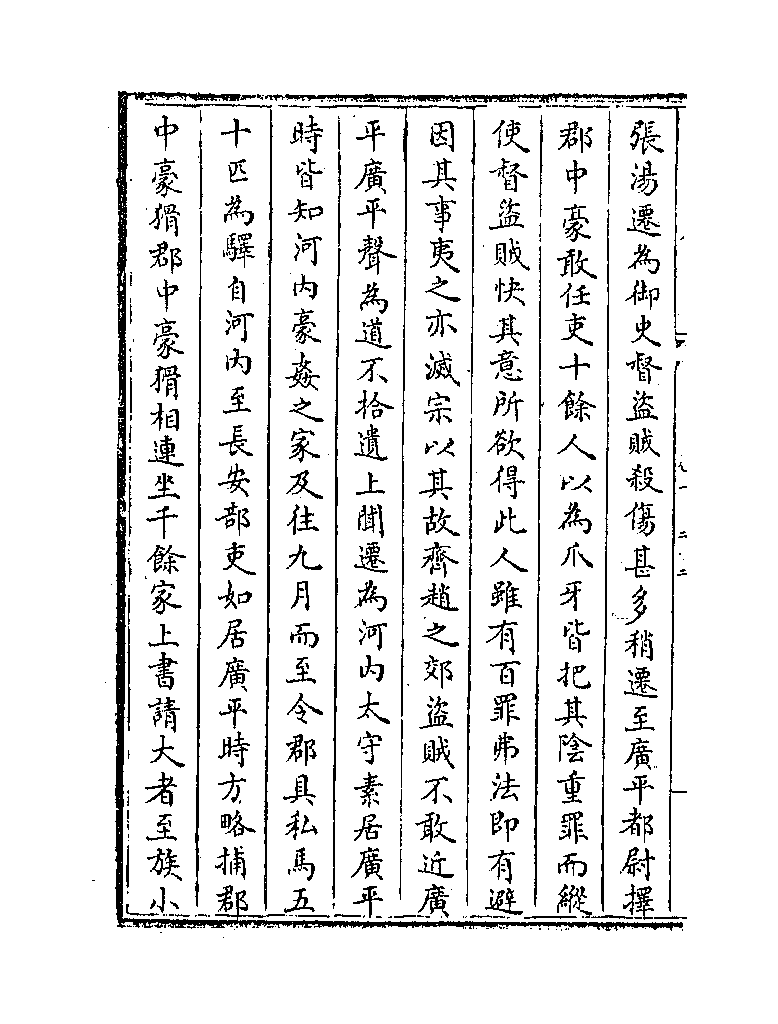 張湯遷為御史督盜賊殺傷甚多稍遷至廣平都尉擇
郡中豪敢任吏十餘人以為爪牙皆把其陰重罪而縱
使督盜賊快其意所欲得此人雖有百罪弗法即有避
因其事夷之亦滅宗以其故齊趙之郊盜賊不敢近廣
平廣平聲為道不拾遺上聞遷為河内太守素居廣平
時皆知河内豪姦之家及往九月而至令郡具私馬五
十匹為驛自河内至長安部吏如居廣平時方略捕郡
中豪猾郡中豪猾相連坐千餘家上書請大者至族小